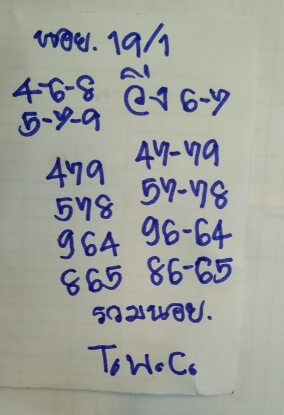 หอย. 19/1
4-6-8 วิ่ง 6-7
5-7-9
479 47-79
578 57-78
964 96-64
865 86-65
รวมหอย.
T. พ. C.